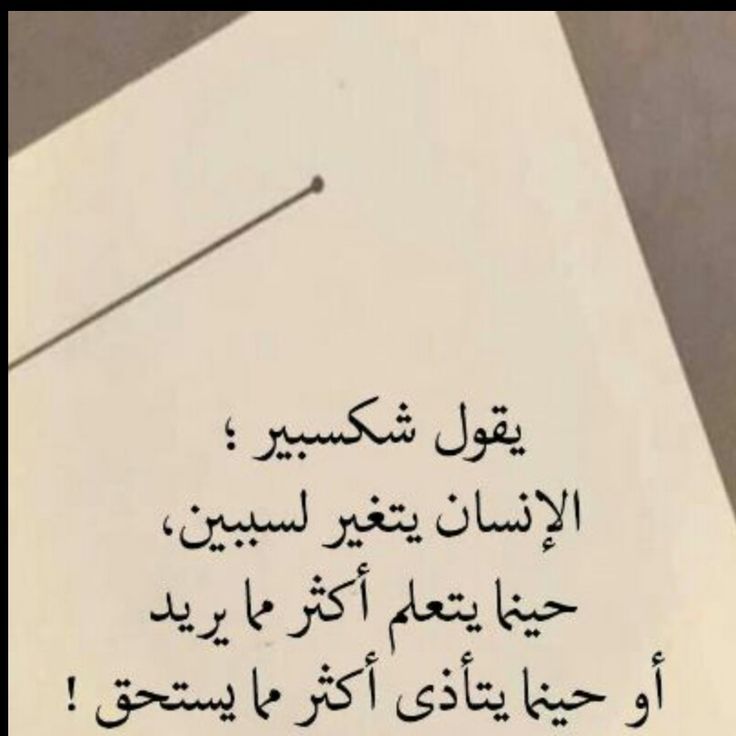 يقول شكسبير ؛
الإنسان يتغير لسببين،
حينما يتعلم أكثر مما يريد
أو حينما يتأذى أكثر مما يستحق !